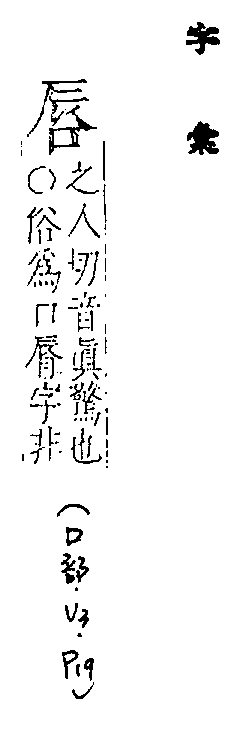 字彙
唇
之人切音眞驚也
○俗爲口脣字非
(口部.V3.P19